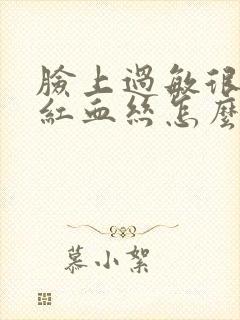 臉上過敏很
紅血絲怎麼
慕小絮